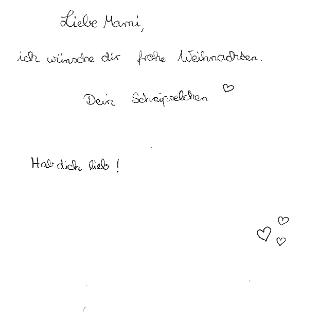 Liebe Mami,
ich wünsche dir frohe Weihnachten.
Dein
Hab dich lieb!